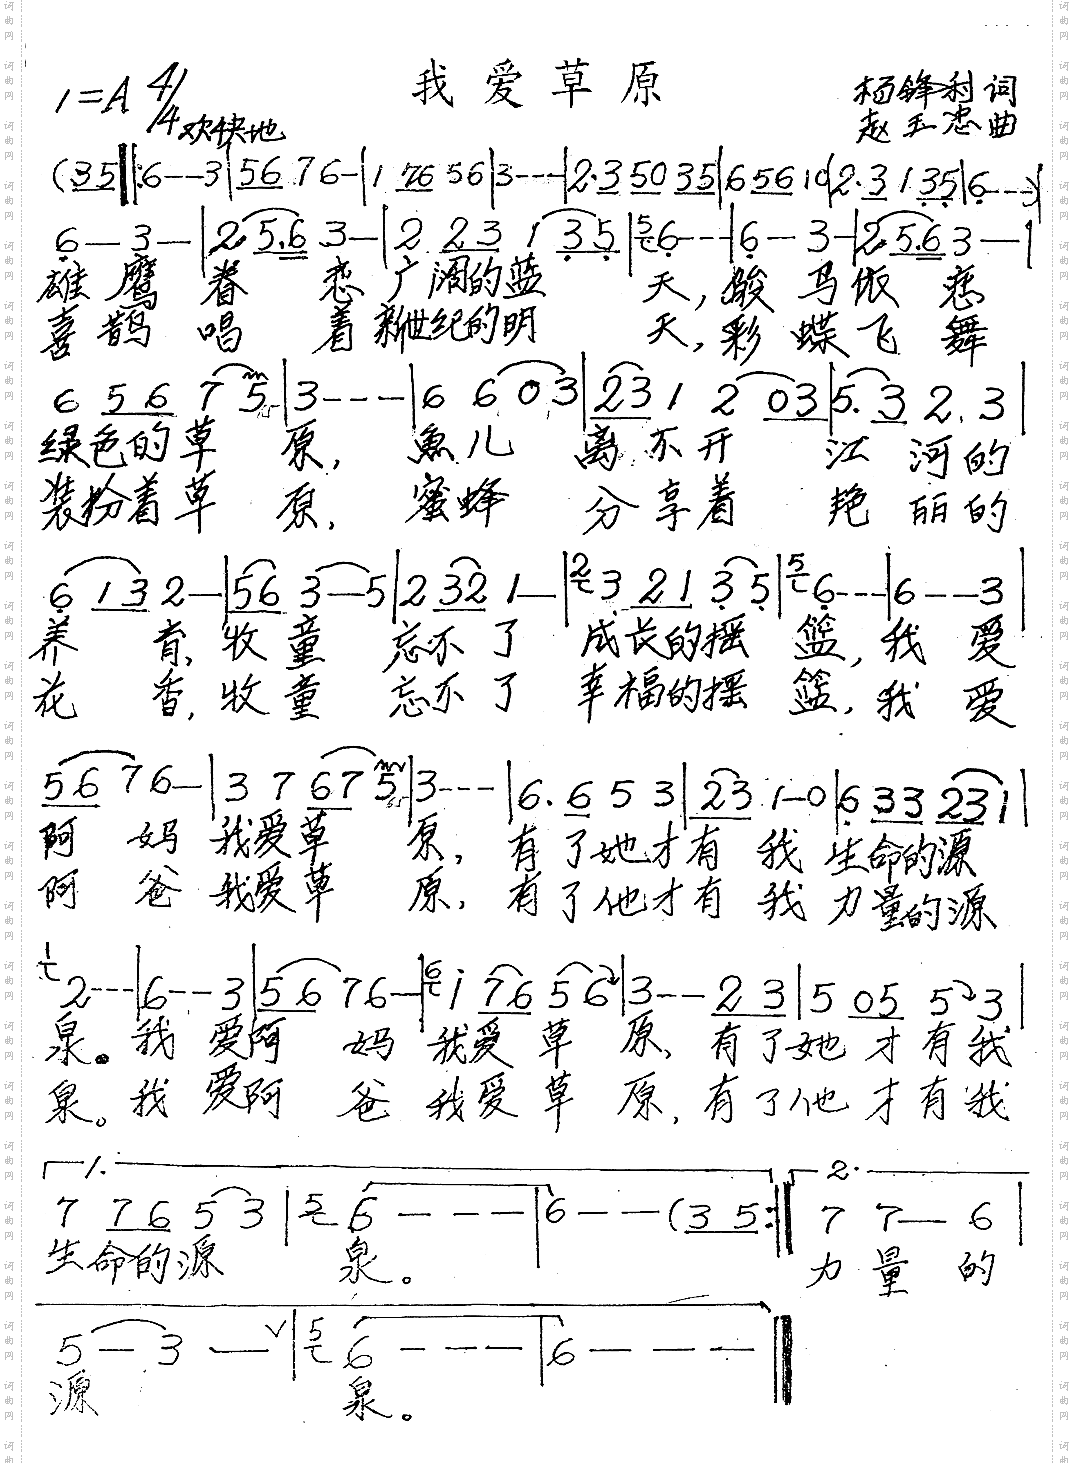 我爱草原
1=A 4/4
欢快地
杨锋利 词
赵玉忠 曲
(35‖:6--3|56 7 6-|1 76 56|3---|2·3 50 35|6 56 10|2·3 1 35|6---)|
6-3-|2·5·6 3-|2 23 1 35|6---|6-3-|2·5·6 3-|
雄鹰眷恋广阔的蓝天,骏马依恋
喜鹊唱着新世纪的明天,彩蝶飞舞
6 56 7 5|3---|6 6 0 3|23 1 2 03|5·3 2·3|
绿色的草原,魚儿离不开江河的
装粉着草原,蜜蜂分享着艳丽的
6 13 2-|56 3-5|2 32 1-|3 21 35|6---|6--3|
养育,牧童忘不了成长的摇篮,我爱
花香,牧童忘不了幸福的摇篮,我爱
56 7 6-|3 7 67 5|3---|6·6 5 3|23 1-0|6 33 231|
阿妈我爱草原,有了她才有我生命的源
阿爸我爱草原,有了他才有我力量的源
2---|6--3|56 7 6-|i 76 56|3--23|5 05 5 3|
泉。我爱阿妈我爱草原,有了她才有我
泉。我爱阿爸我爱草原,有了他才有我
1. 2.
7 76 5 3|6---|6--(35:‖7 7-6|
生命的源泉。力量的
5-3-|6---|6---‖
源泉。
词曲网